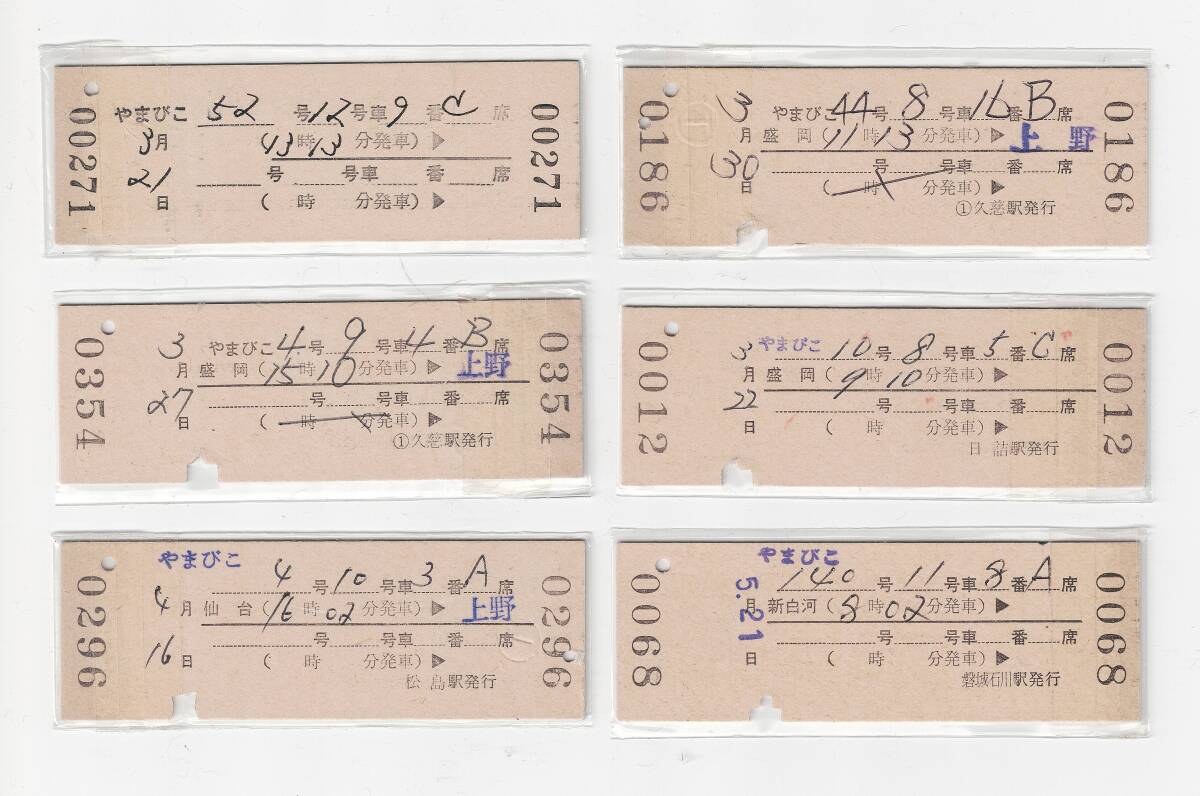 00271
やまびこ 52 号 12 号車 9 番 C 席
3月 (13時13 分発車)▶
21 号 号車 番 席
日 ( 時 分発車)▶
00271
0186
3 やまびこ 44 号 8 号車 16 番 B 席
月 盛岡 (11時13 分発車)▶ 上野
30 号 号車 番 席
日 ( 時 分発車)▶
①久慈駅発行
0186
0354
3 やまびこ 4 号 9 号車 4 番 B 席
月 盛岡 (15時10 分発車)▶ 上野
27 号 号車 番 席
日 ( 時 分発車)▶
①久慈駅発行
0354
0012
3 やまびこ 10 号 8 号車 5 番 C 席
月 盛岡 (9時10 分発車)▶
22 号 号車 番 席
日 ( 時 分発車)▶
日詰駅発行
0012
0296
やまびこ
4 号 10 号車 3 番 A 席
4月 仙台 (16時02 分発車)▶ 上野
号 号車 番 席
16日 ( 時 分発車)▶
松島駅発行
0296
0068
やまびこ
140 号 11 号車 8 番 A 席
5.21
月 新白河 (8時02 分発車)▶
号 号車 番 席
日 ( 時 分発車)▶
磐城石川駅発行
0068